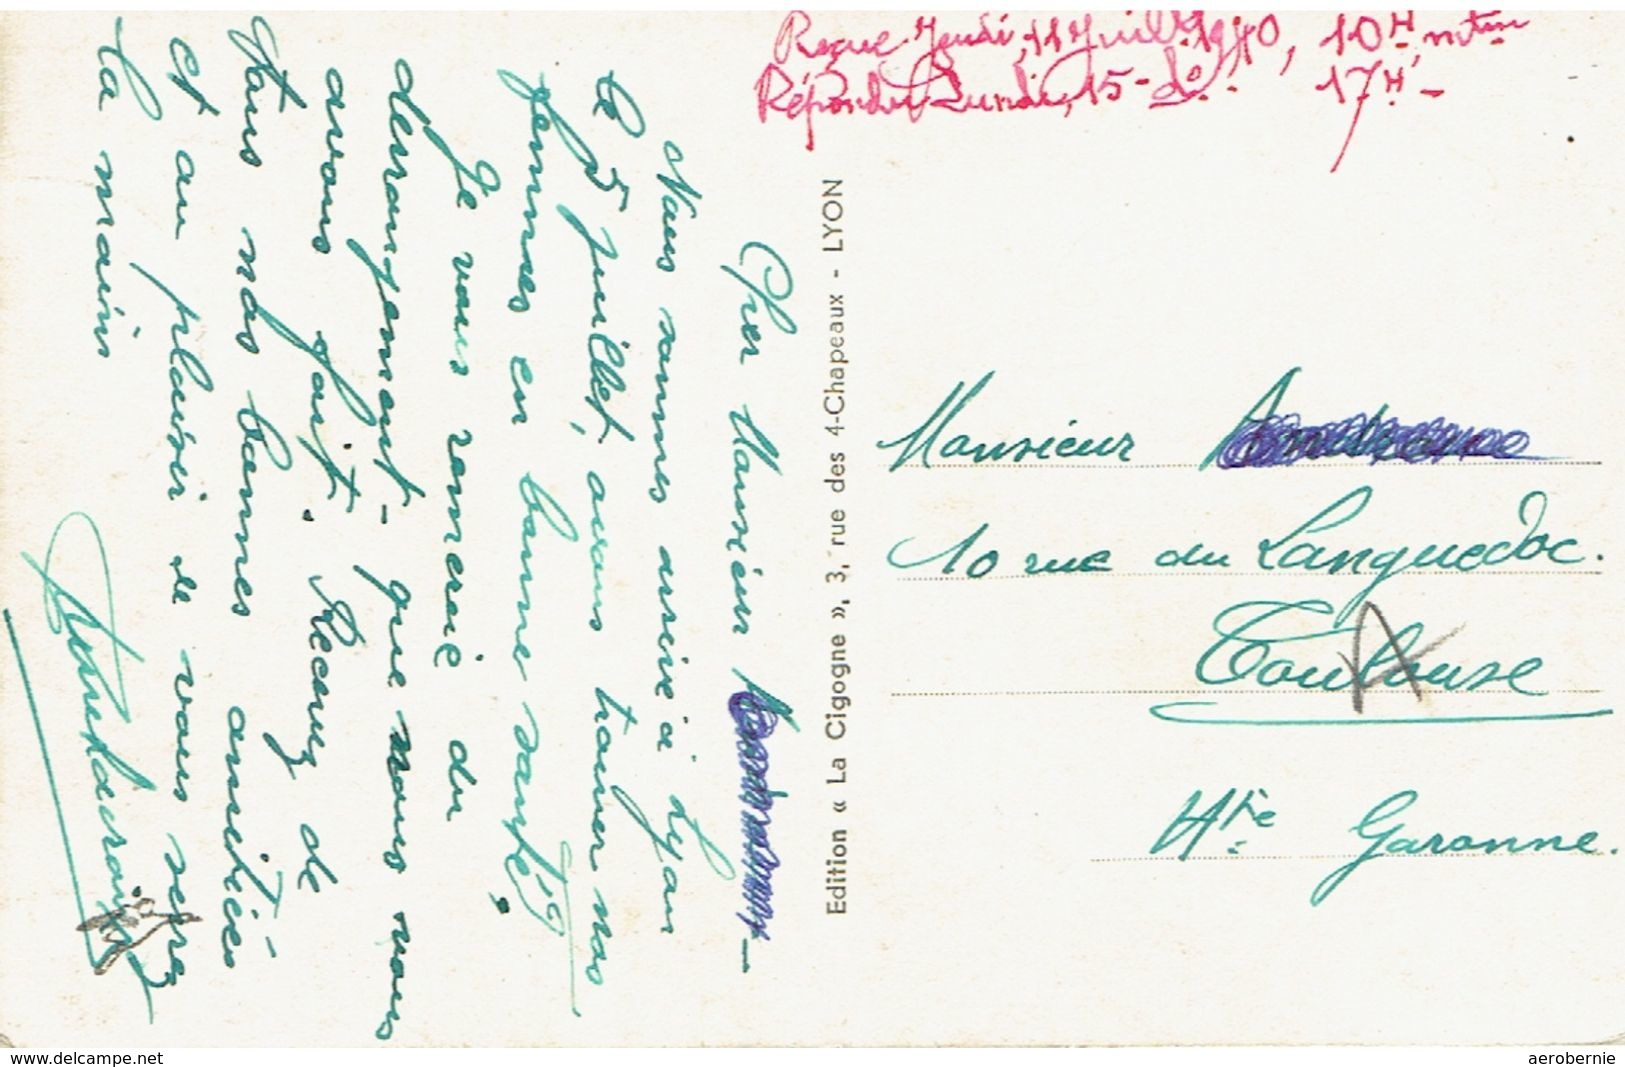 Reçue Jeudi, 11 Juill. 1940, 10H, mtin
Répondu Lundi, 15 - do. - 17H. -
Cher Monsieur
Nous sommes arrivé à Lyon
le 5 juillet, avons trouver nos
femmes en bonne santé.
Je vous remercie du
derrangement - que nous vous
avons fait. Recevez de
tous nos bonnes amitiés
et au plaisir de vous serrez
la mains
Edition « La Cigogne », 3, rue des 4-Chapeaux - LYON
Monsieur
10 rue du Languedoc.
Toulouse
Hte Garonne.
www.delcampe.net
aerobernie